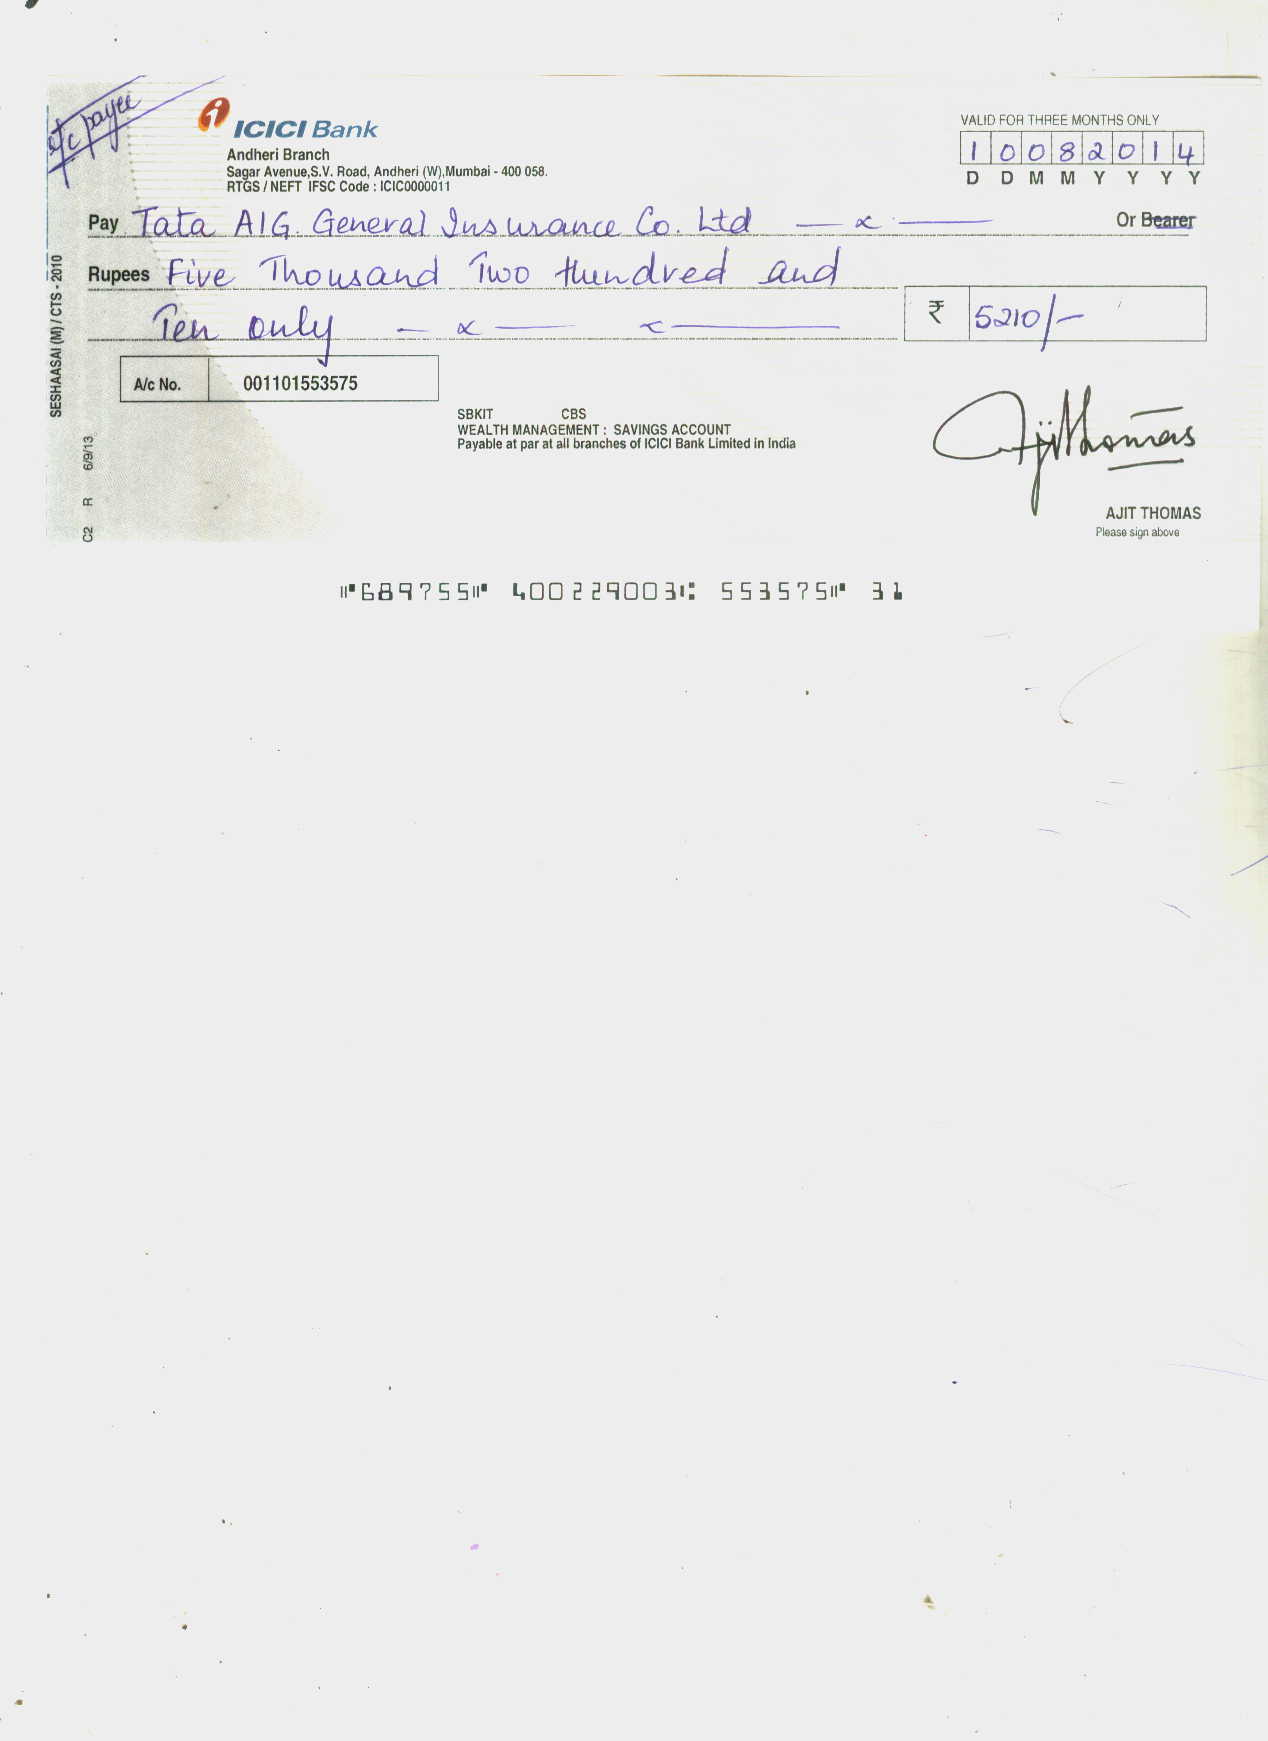 a/c payee
ICICI Bank
Andheri Branch
Sagar Avenue,S.V. Road, Andheri (W),Mumbai - 400 058.
RTGS / NEFT IFSC Code : ICIC0000011
VALID FOR THREE MONTHS ONLY
1 0 0 8 2 0 1 4
D D M M Y Y Y Y
Pay Tata AIG. General Insurance Co. Ltd Or Bearer
Rupees Five Thousand Two Hundred and
Ten only ₹ 5210/-
A/c No. 001101553575
SBKIT CBS
WEALTH MANAGEMENT : SAVINGS ACCOUNT
Payable at par at all branches of ICICI Bank Limited in India
Ajit Thomas
AJIT THOMAS
Please sign above
SESHAASAI (M) / CTS - 2010
C2 R 6/9/13
⑈689755⑈ 400229003⑆ 553575⑈ 31